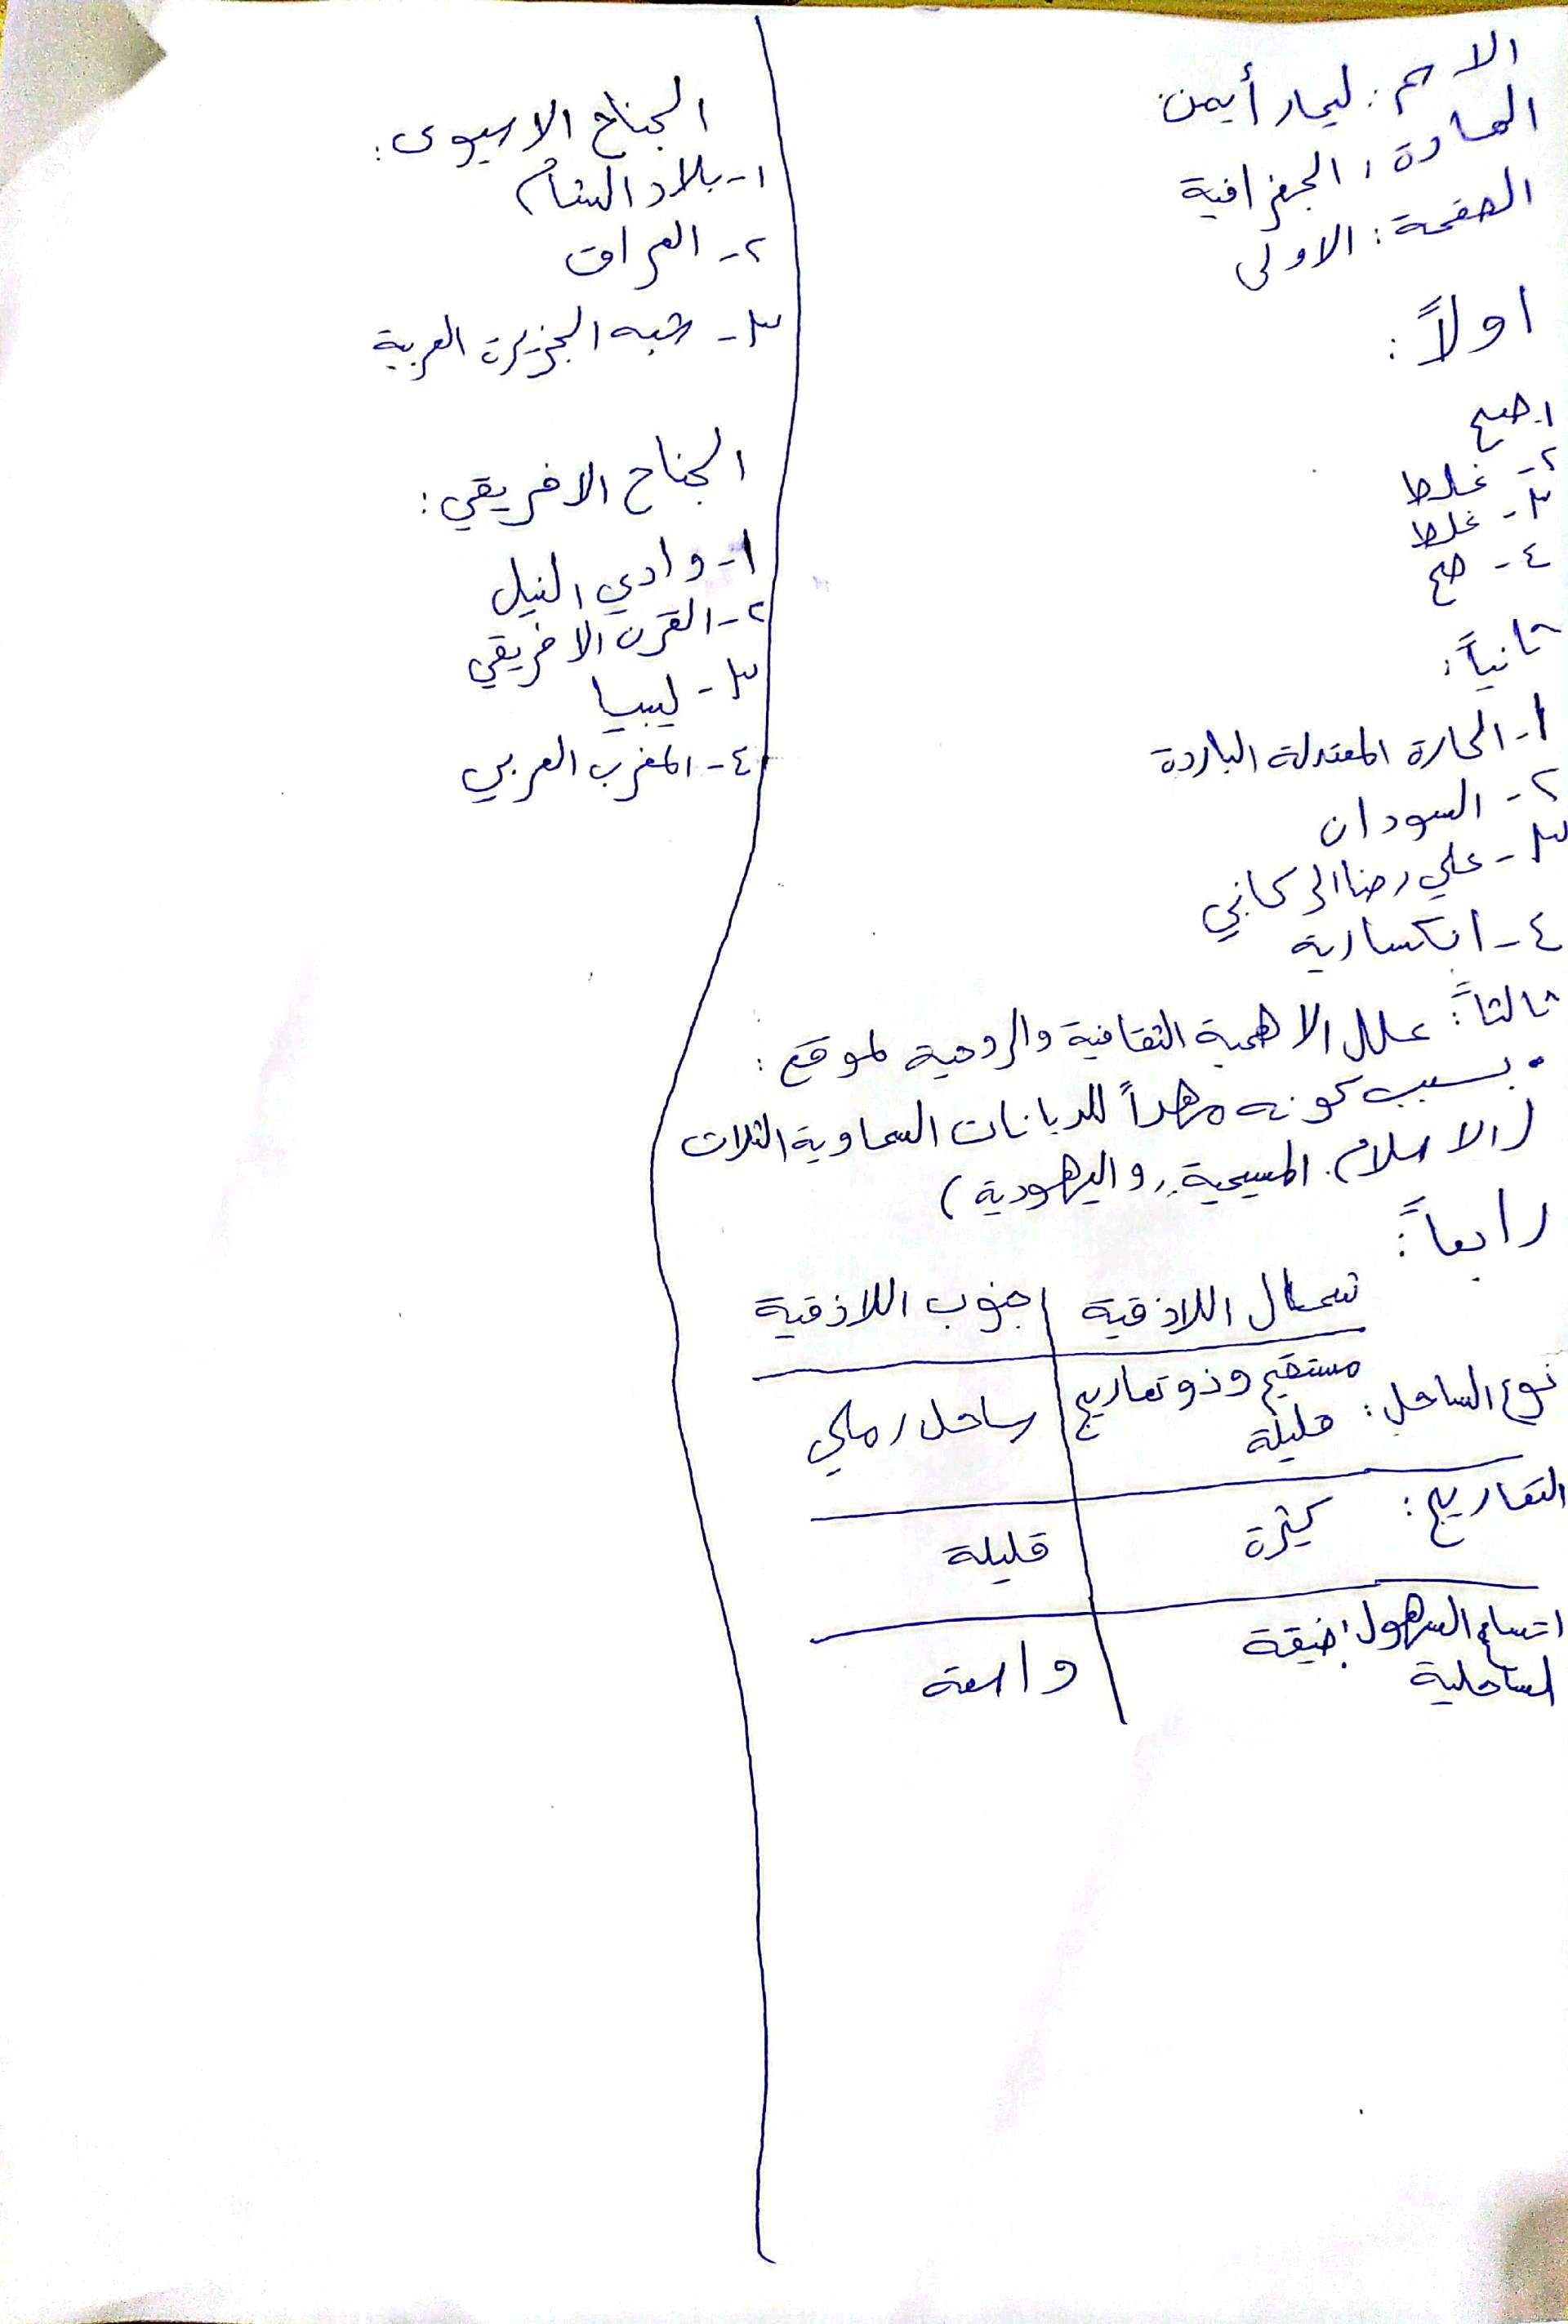 الاسم: ليمار أيمن
المادة: الجغرافية
الصفحة: الاولى
اولاً:
١- صح
٢- غلط
٣- غلط
٤- صح
ثانياً:
١- الحارة المعتدلة الباردة
٢- السودان
٣- علي رضا الركابي
٤- انكسارية
ثالثاً: علل الاهمية الثقافية والروحية لموقع:
• بسبب كونه مهداً للديانات السماوية الثلاث
(الاسلام. المسيحية, واليهودية)
رابعاً:
شمال اللاذقية جنوب اللاذقية
نوع الساحل: مستقيم وذو تعاريج قليلة ساحل رملي
التعاريج: كثيرة قليلة
اتساع السهول الساحلية: ضيقة واسعة
الجناح الاسيوى:
١- بلاد الشام
٢- العراق
٣- شبه الجزيرة العربية
الجناح الافريقي:
١- وادي النيل
٢- القرن الافريقي
٣- ليبيا
٤- المغرب العربي